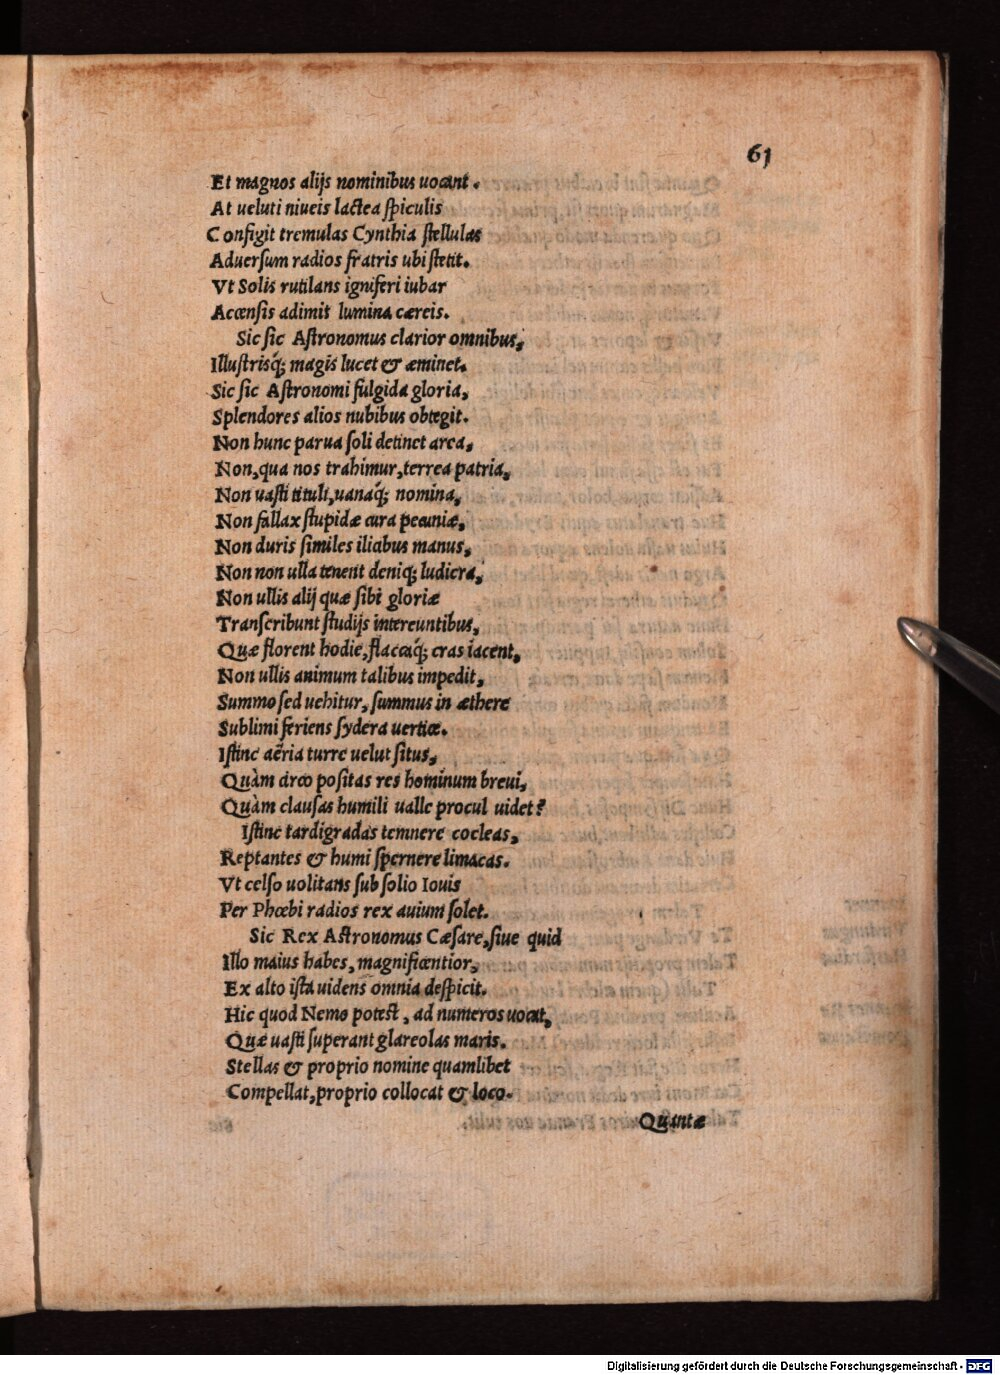 61
Et magnos alijs nominibus uocant.
At ueluti niueis lactea ſpiculis
Configit tremulas Cynthia ſtellulas
Aduerſum radios fratris ubi ſtetit.
Vt Solis rutilans igniferi iubar
Accenſis adimit lumina cæreis.
Sic ſic Aſtronomus clarior omnibus,
Illuſtrisq́; magis lucet & æminet.
Sic ſic Aſtronomi fulgida gloria,
Splendores alios nubibus obtegit.
Non hunc parua ſoli detinet area,
Non, qua nos trahimur, terrea patria,
Non uaſti tituli, uanaq́; nomina,
Non fallax ſtupidæ cura pecuniæ,
Non duris ſimiles iliabus manus,
Non non ulla tenent deniq; ludicra,
Non ullis alij quæ ſibi gloriæ
Tranſcribunt ſtudijs intereuntibus,
Quæ florent hodie, flaccaq́; cras iacent,
Non ullis animum talibus impedit,
Summo ſed uehitur, ſummus in æthere
Sublimi feriens ſydera uertice.
Iſtinc aëria turre uelut ſitus,
Quàm arco poſitas res hominum breui,
Quàm clauſas humili ualle procul uidet?
Iſtinc tardigradas temnere cocleas,
Reptantes & humi ſpernere limacas.
Vt celſo uolitans ſub ſolio Iouis
Per Phœbi radios rex auium ſolet.
Sic Rex Aſtronomus Cæſare, ſiue quid
Illo maius habes, magnificentior,
Ex alto iſta uidens omnia deſpicit.
Hic quod Nemo poteſt, ad numeros uocat,
Quæ uaſti ſuperant glareolas maris.
Stellas & proprio nomine quamlibet
Compellat, proprio collocat & loco.
Quantæ
Digitalisierung gefördert durch die Deutsche Forschungsgemeinschaft - DFG